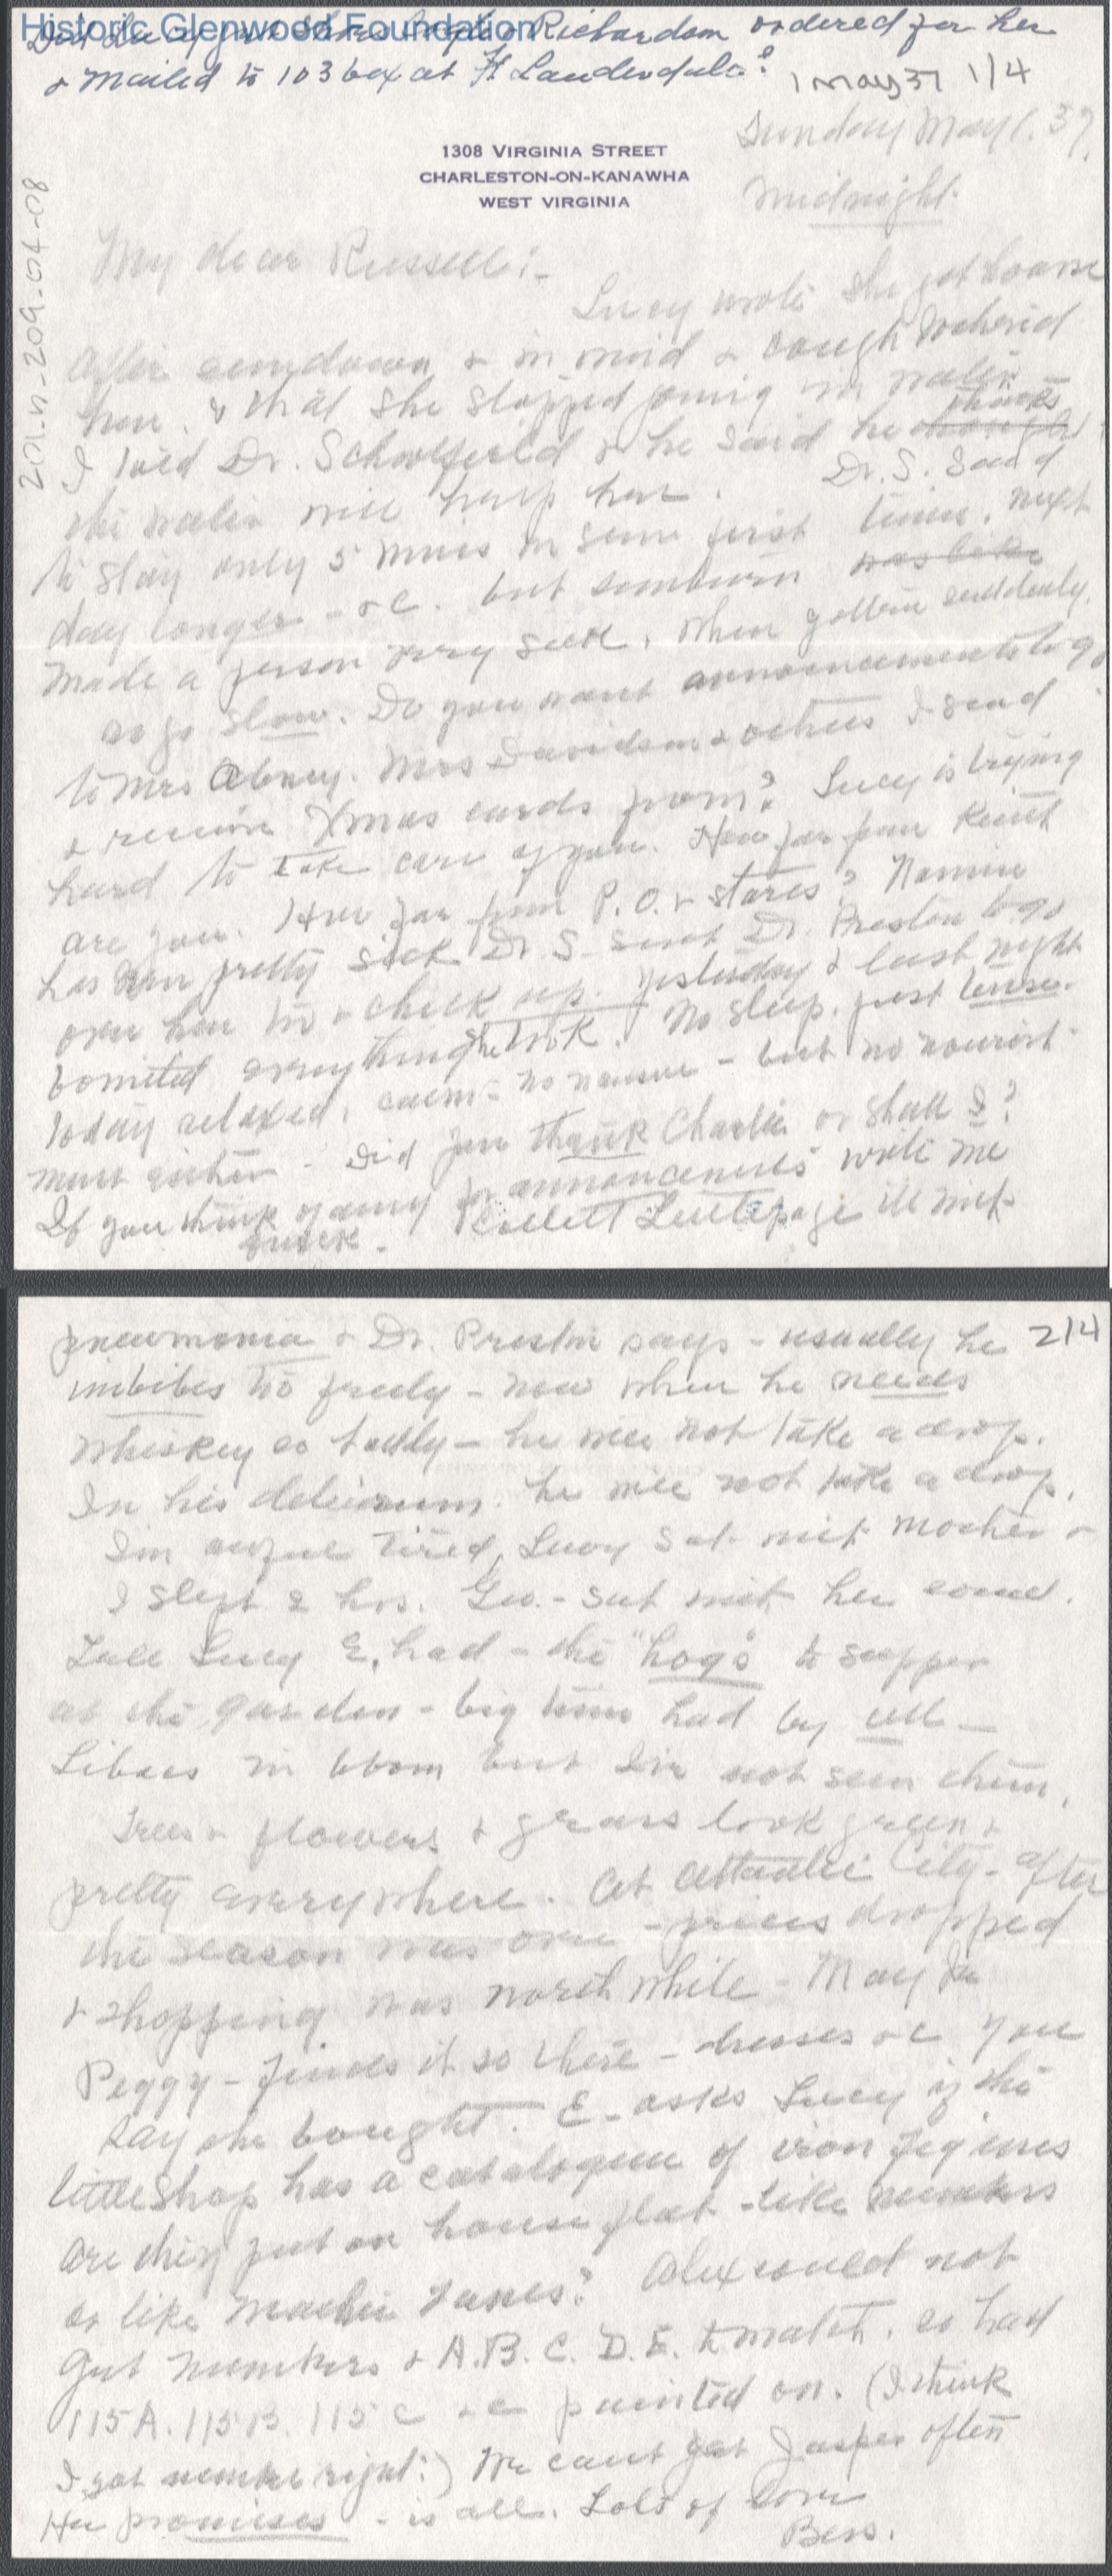 Historic Glenwood Foundation
Did Lucy get shoes Richardson ordered for her
& mailed to 103 box at Ft Lauderdale?
1 May 37 1/4
Sunday May 1. 37.
Midnight.
1308 Virginia Street
Charleston-on-Kanawha
West Virginia
201.n-209-04-08
My dear Russell:-
Lucy wrote she got hoarse
after sundown & in wind & cough bothered
her. & that she stopped going in water
I told Dr. Schoolfield & he said he thinks
the water will help her. Dr. S. said
to stay only 5 mins in sun first time, next
day longer - &c. but sunburn was like
made a person very sick, when gotten suddenly.
so go slow. Do you want announcements to go
to Mrs Abney. Mrs Davidson & others I send
& receive Xmas cards from? Lucy is trying
hard to take care of you. How far from
are you. How far from P.O. & stores? Nannie
has been pretty sick Dr S. sent Dr. Preston to go
over her to & check up. Yesterday & last night
vomited everything she took. No sleep, just tense.
Today relaxed, calm - no nausea - but no nourish-
ment either - Did you thank Charlie or shall I?
If you think of any for announcements write me
quick. Kellett Littlepage ill with
pneumonia & Dr. Preston says - usually he 2/4
imbibes too freely - now when he needs
whiskey so badly - he will not take a drop.
In his delirium. he will not take a drop.
I'm awful tired, Lucy sat with Mother &
I slept 2 hrs. Geo. - sat with her some.
Tell Lucy E. had - the "hogs" to supper
at the garden - big time had by all -
Lilacs in bloom but I've not seen them.
Trees & flowers & grass look green &
pretty everywhere. At Atlantic City - after
the season was over - prices dropped
& shopping was worth while - May be
Peggy - finds it so there - dresses &c you
say she bought. E - asks Lucy if the
little shop has a catalogue of iron figures
are they put on house flat - like numbers
or like weather vanes? Alex could not
get numbers & A.B.C.D.E. to match. so had
115A. 115B. 115C &c painted on. (I think
I got number right.) We cant get Jasper often
He promises - is all. Lots of love
Bess.